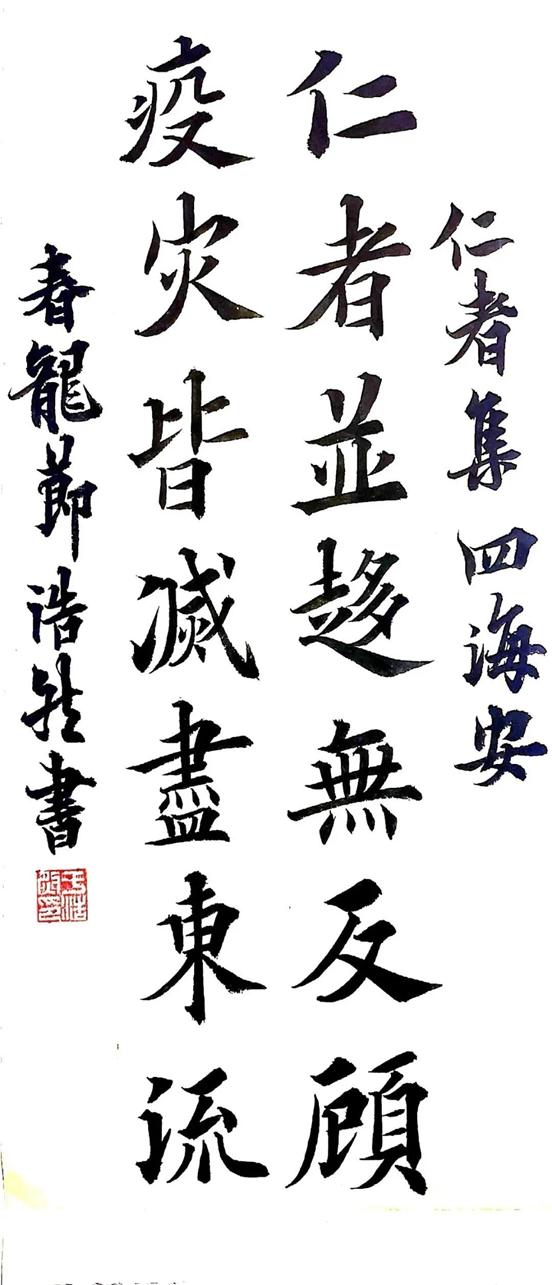 仁者集四海安
仁者並趍無反顧
疫灾皆滅盡東流
春龍節浩然書